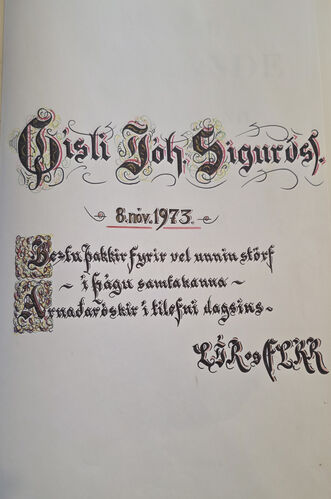 Gísli Jóh. Sigurðss.
8. nóv. 1973.
Bestu þakkir fyrir vel unnin störf
- í þágu samtakanna -
Árnaðaróskir í tilefni dagsins.
LÍR og FLKR